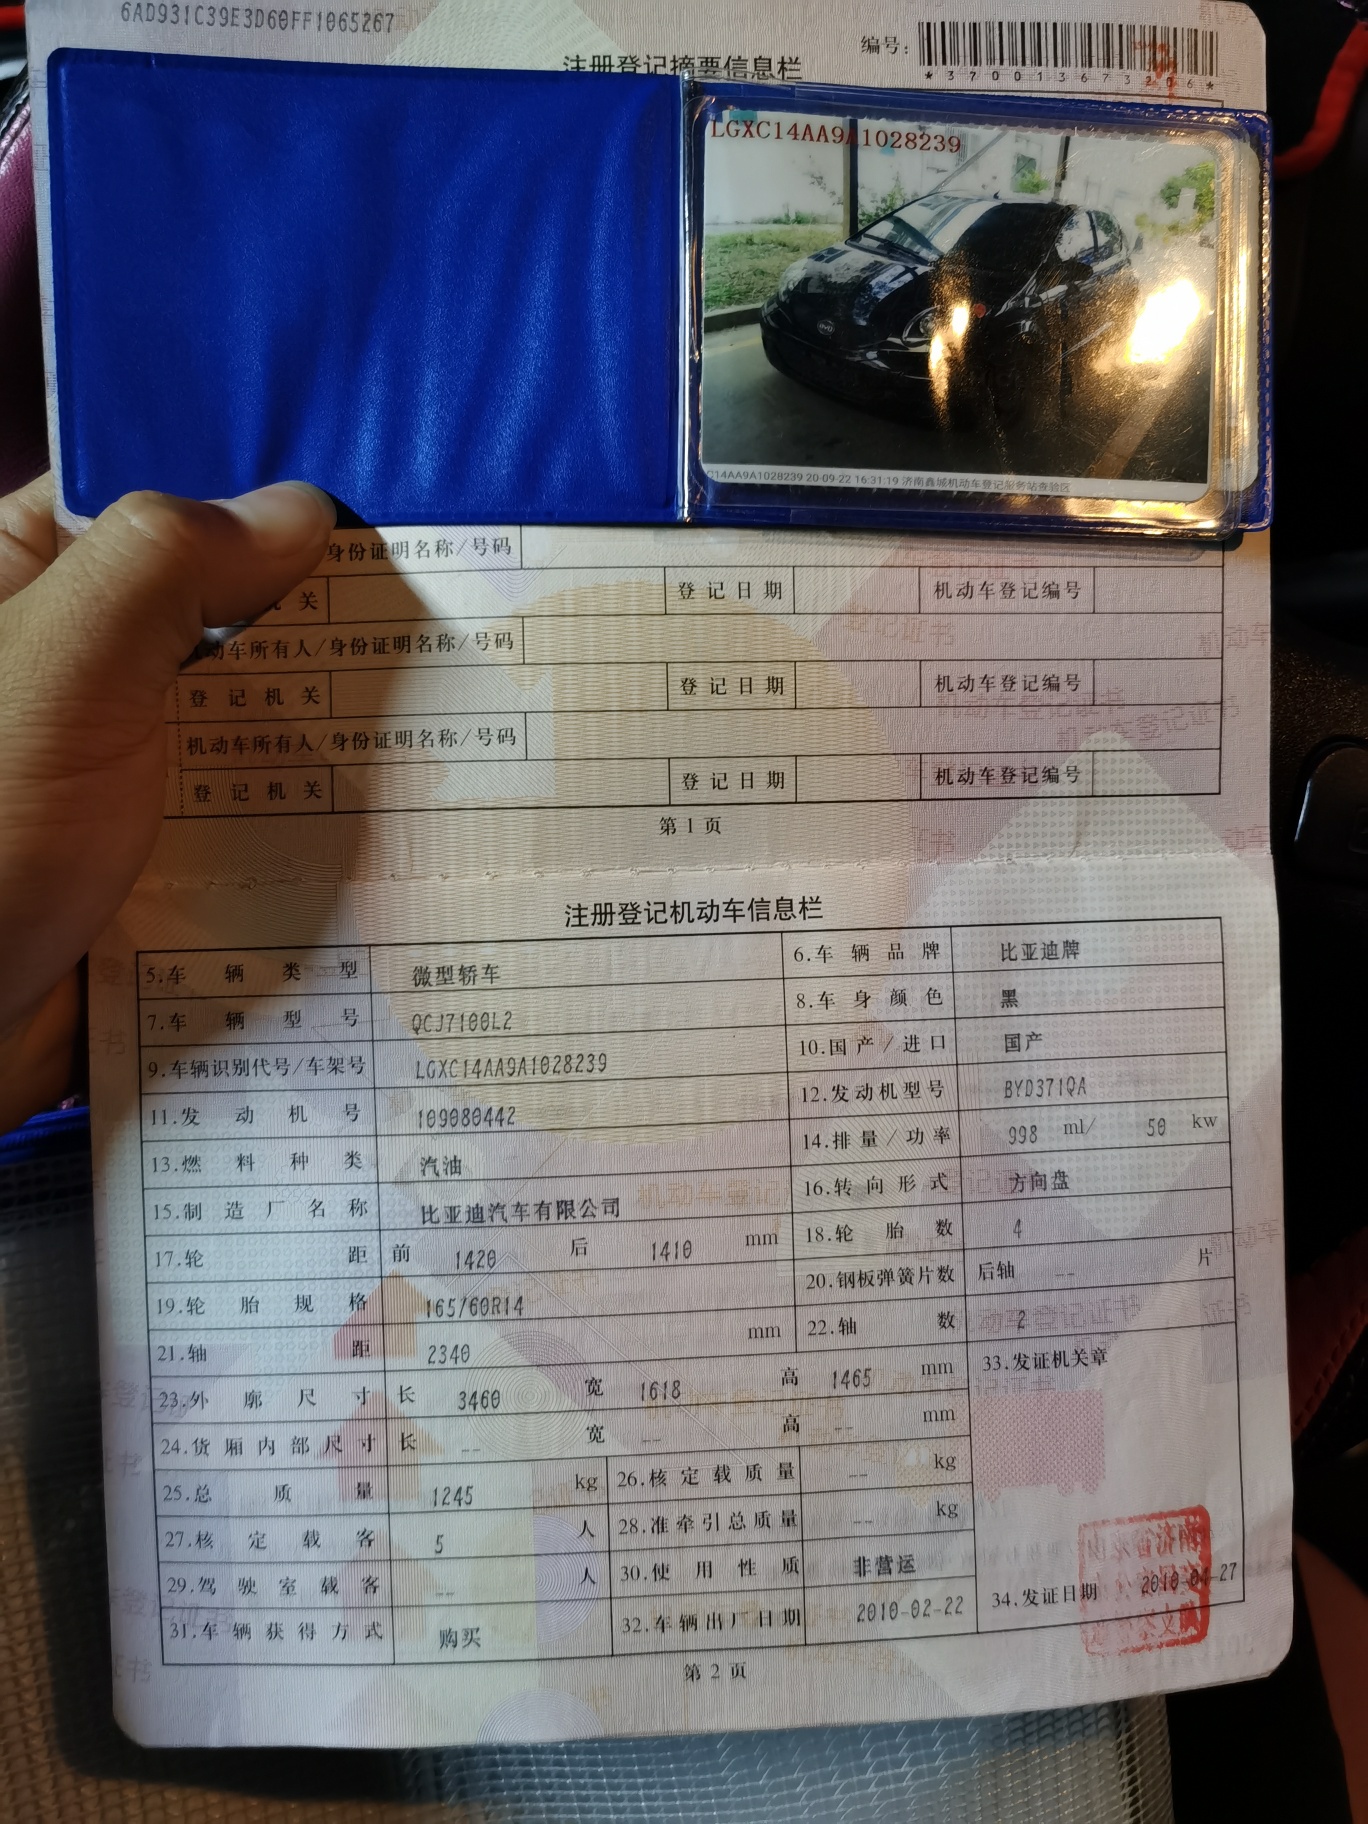 6AD931C39E3D60FF1065267
注册登记摘要信息栏
编号:
*370013673206*
LGXC14AA9A1028239
BYD
C14AA9A1028239 20-09-22 16:31:19 济南鑫城机动车登记服务站查验区
身份证明名称/号码
机 关 登记日期 机动车登记编号
机动车所有人/身份证明名称/号码
登记机关 登记日期 机动车登记编号
机动车所有人/身份证明名称/号码
登记机关 登记日期 机动车登记编号
第 1 页
注册登记机动车信息栏
5.车辆类型 微型轿车 6.车辆品牌 比亚迪牌
7.车辆型号 QCJ7100L2 8.车身颜色 黑
9.车辆识别代号/车架号 LGXC14AA9A1028239 10.国产/进口 国产
11.发动机号 109080442 12.发动机型号 BYD371QA
13.燃料种类 汽油 14.排量/功率 998 ml/ 50 kw
15.制造厂名称 比亚迪汽车有限公司 16.转向形式 方向盘
17.轮距 前 1420 后 1410 mm 18.轮胎数 4
19.轮胎规格 165/60R14 20.钢板弹簧片数 后轴 -- 片
21.轴距 2340 mm 22.轴数 2
23.外廓尺寸 长 3460 宽 1618 高 1465 mm 33.发证机关章
24.货厢内部尺寸 长 -- 宽 -- 高 -- mm
25.总质量 1245 kg 26.核定载质量 -- kg
27.核定载客 5 人 28.准牵引总质量 -- kg
29.驾驶室载客 -- 人 30.使用性质 非营运
31.车辆获得方式 购买 32.车辆出厂日期 2010-02-22 34.发证日期 2010-04-27
第 2 页